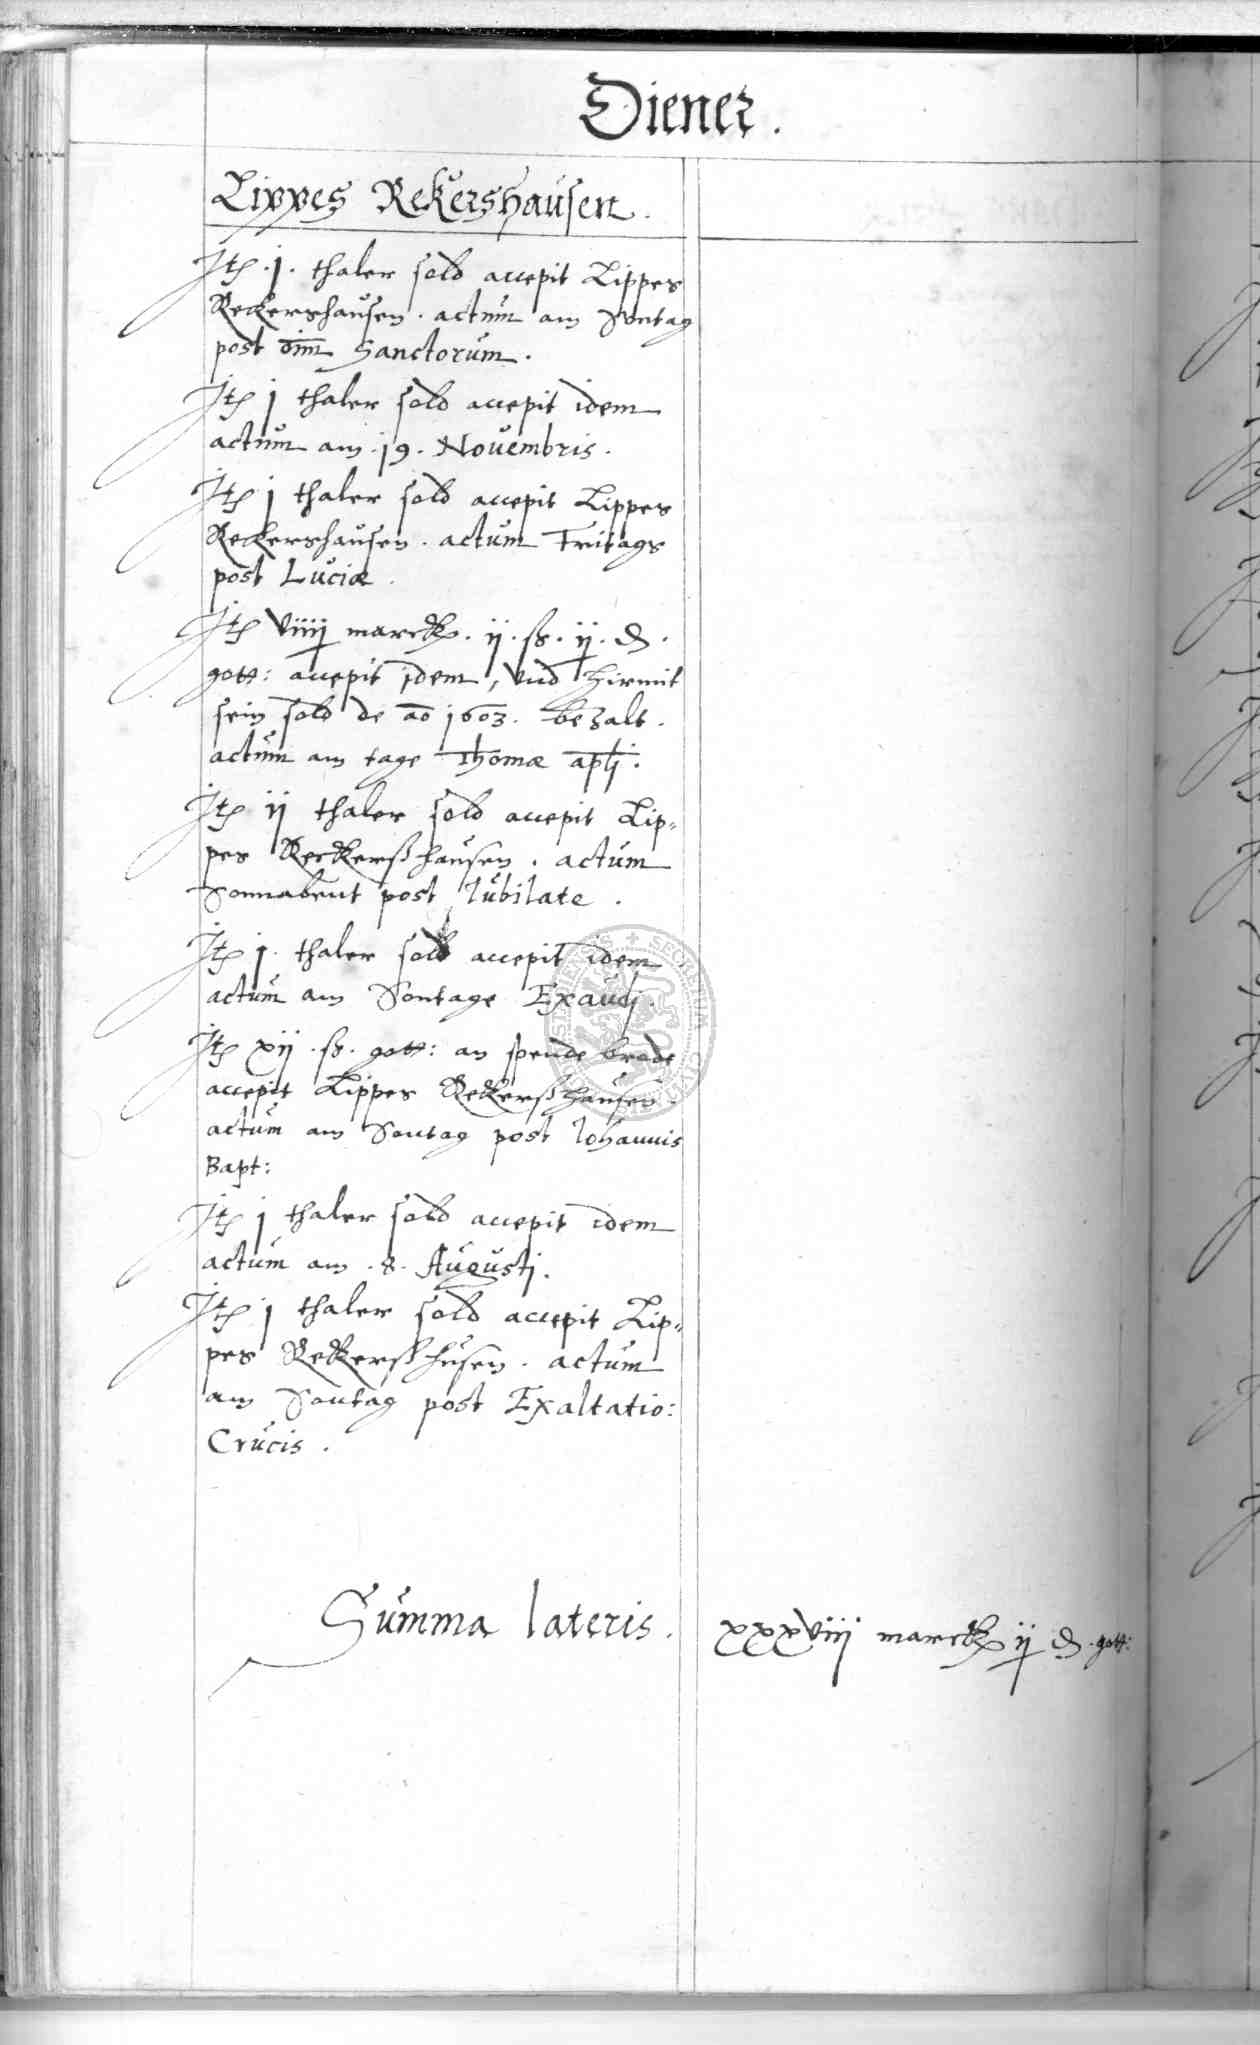 Diener.
Lippes Rekershausen.
Jtem .j. thaler sold accepit Lippes
Reckershausen. actum am Sontag
post om̄ Sanctorum.
Jtem j thaler sold accepit idem
actum am .19. Novembris.
Jtem j thaler sold accepit Lippes
Reckershausen. actum Fritags
post Luciæ.
Jtem viiij marck. ij. ß. ij. ₰.
gott: accepit idem, vnd hirmit
sein sold de ao 1603. bezalt.
actum am tage Thomæ apli:
Jtem ij thaler sold accepit Lip=
pes Reckerßhausen. actum
Sonnabent post Iubilate.
Jtem j. thaler sold accepit idem
actum am Sontage Exaudj.
Jtem xij .ß. gott: an spende brode
accepit Lippes Rekerßhausen.
actum am Sontag post Iohannis
Bapt:
Jtem j thaler sold accepit idem
actum am .8. Augustj.
Jtem j thaler sold accepit Lip=
pes Rekerßhusen. actum
am Sontag post Exaltatio:
Crucis.
Summa lateris. xxxviij marck ij ₰. gott: